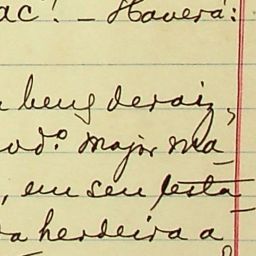 ac! - Havera:
bens de raiz,
od.º Major Ma-
, em seu testa-
ra herdeira a